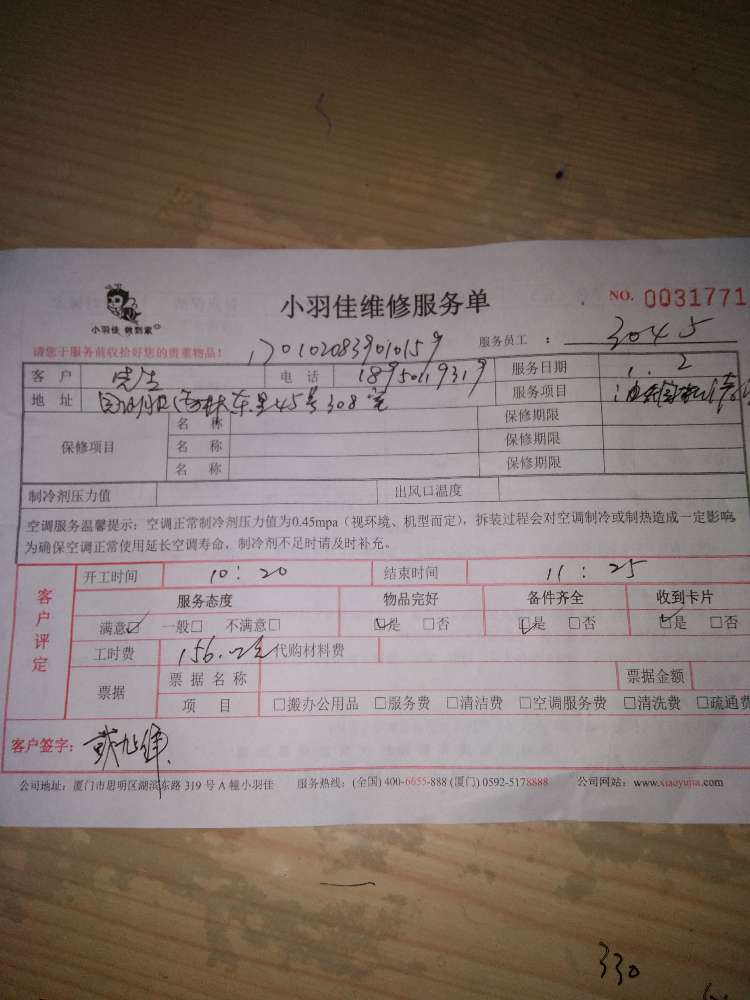 小羽佳 做到家
小羽佳维修服务单
NO. 0031771
请您于服务前收拾好您的贵重物品!
1701020839010159
服务员工 : 3045
客户 先生 电话 18950119319 服务日期 1.2
地址 东里45号308室 服务项目 油烟机清
保修项目 名称 保修期限
名称 保修期限
名称 保修期限
制冷剂压力值 出风口温度
空调服务温馨提示:空调正常制冷剂压力值为0.45mpa(视环境、机型而定),拆装过程会对空调制冷或制热造成一定影响,
为确保空调正常使用延长空调寿命,制冷剂不足时请及时补充。
客户评定
开工时间 10:20 结束时间 11:25
服务态度 物品完好 备件齐全 收到卡片
满意☑ 一般□ 不满意□ ☑是 □否 ☑是 □否 ☑是 □否
工时费 156.元 代购材料费
票据 票据名称 票据金额
项目 □搬办公用品 □服务费 □清洁费 □空调服务费 □清洗费 □疏通费
客户签字:
公司地址:厦门市思明区湖滨东路 319 号 A 幢小羽佳 服务热线:(全国) 400-6655-888 (厦门) 0592-5178888 公司网站:www.xiaoyujia.com
330